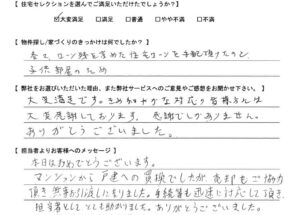 【 住宅セレクションを選んでご満足いただけたでしょうか？ 】
☑大変満足 □満足 □普通 □やや不満 □不満
【 物件探し/家づくりのきっかけは何でしたか？ 】
ローン 含めた住宅ローンを手配頂けたので、
子供部屋のため
【 弊社をお選びいただいた理由、また弊社サービスへのご意見やご感想をお聞かせ下さい。 】
大変満足です。きめ細やかな対応り皆様方には
大変感謝しております。感謝でしかありません。
ありがとうございました。
【 担当者よりお客様へのメッセージ 】
本日はおめでとうございます。
マンションから戸建への買換でしたが、売却もご協力
頂き無事お引渡しになりました。手続等も迅速に対応して頂き、
担当者としても助かりました。ありがとうございました。